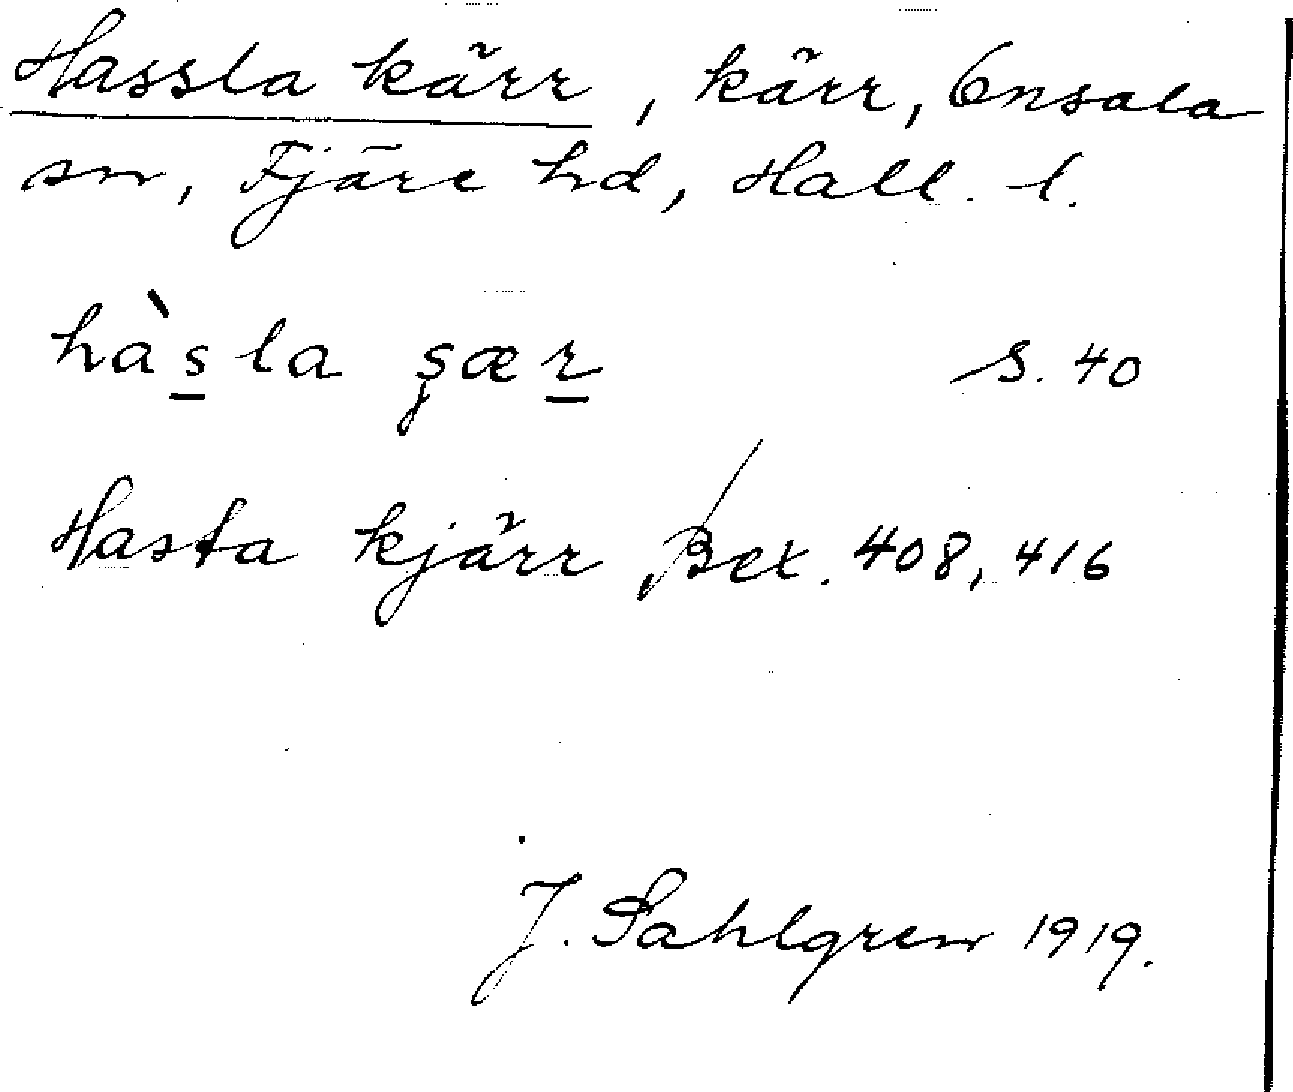 Hassla kärr, kärr, Onsala
sn, Fjäre hd, Hall. l.
hàsla şær S. 40
Hasta kjärr Bex. 408, 416
J. Sahlgren 1919.